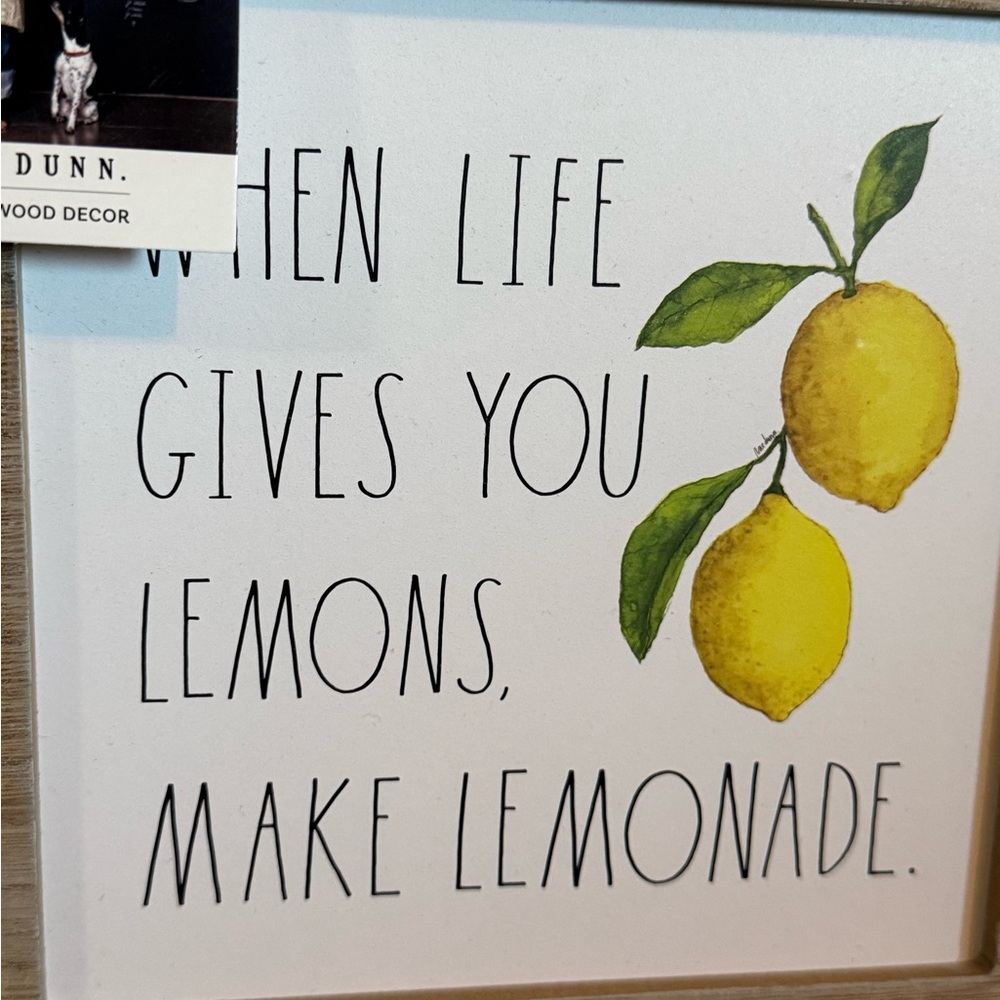 DUNN.
WOOD DECOR
WHEN LIFE
GIVES YOU
LEMONS,
MAKE LEMONADE.